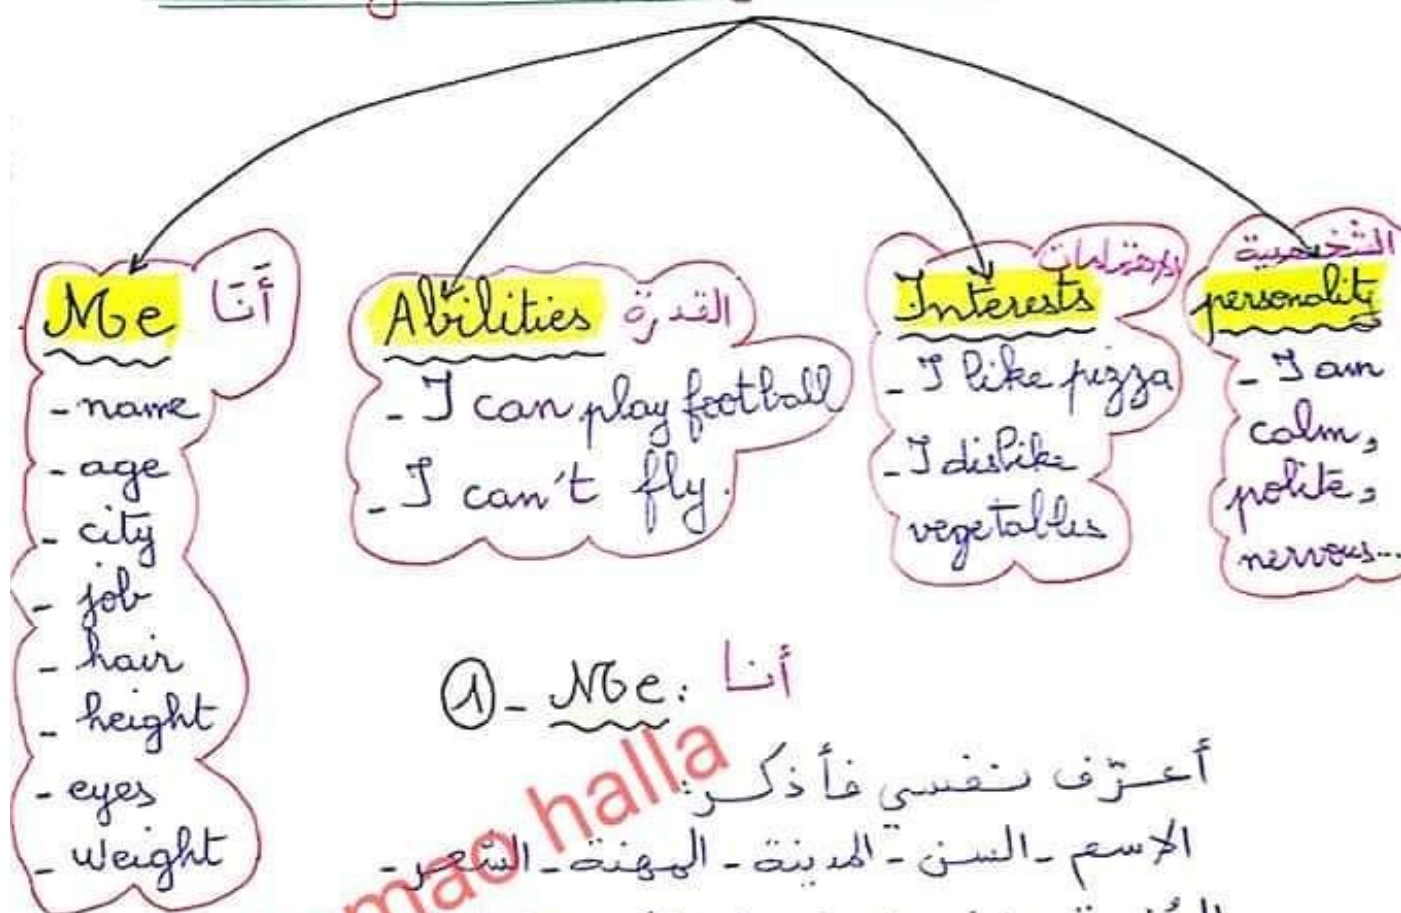 Me أَنَا
- name
- age
- city
- job
- hair
- height
- eyes
- weight
Abilities القدرة
- I can play football
- I can't fly.
الاهتمامات
Interests
- I like pizza
- I dislike
vegetables
الشخصية
personality
- I am
calm,
polite,
nervous...
① - Me: أنا
أعرّف نفسي فأذكر:
الاسم - السن - المدينة - المهنة - الشعر -
halla